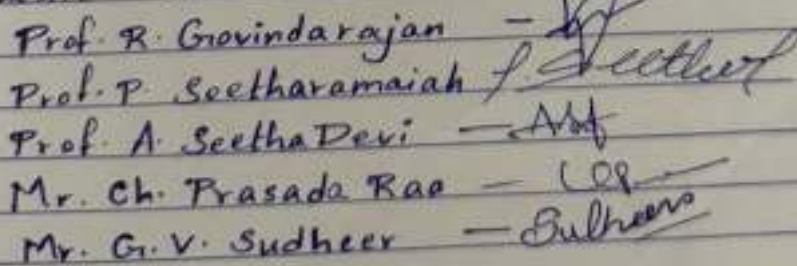 Prof. R. Govindarajan -
Prof. P. Seetharamaiah P. Seethar
Prof. A. Seetha Devi -
Mr. Ch. Prasada Rao -
Mr. G. V. Sudheer - Sudheer